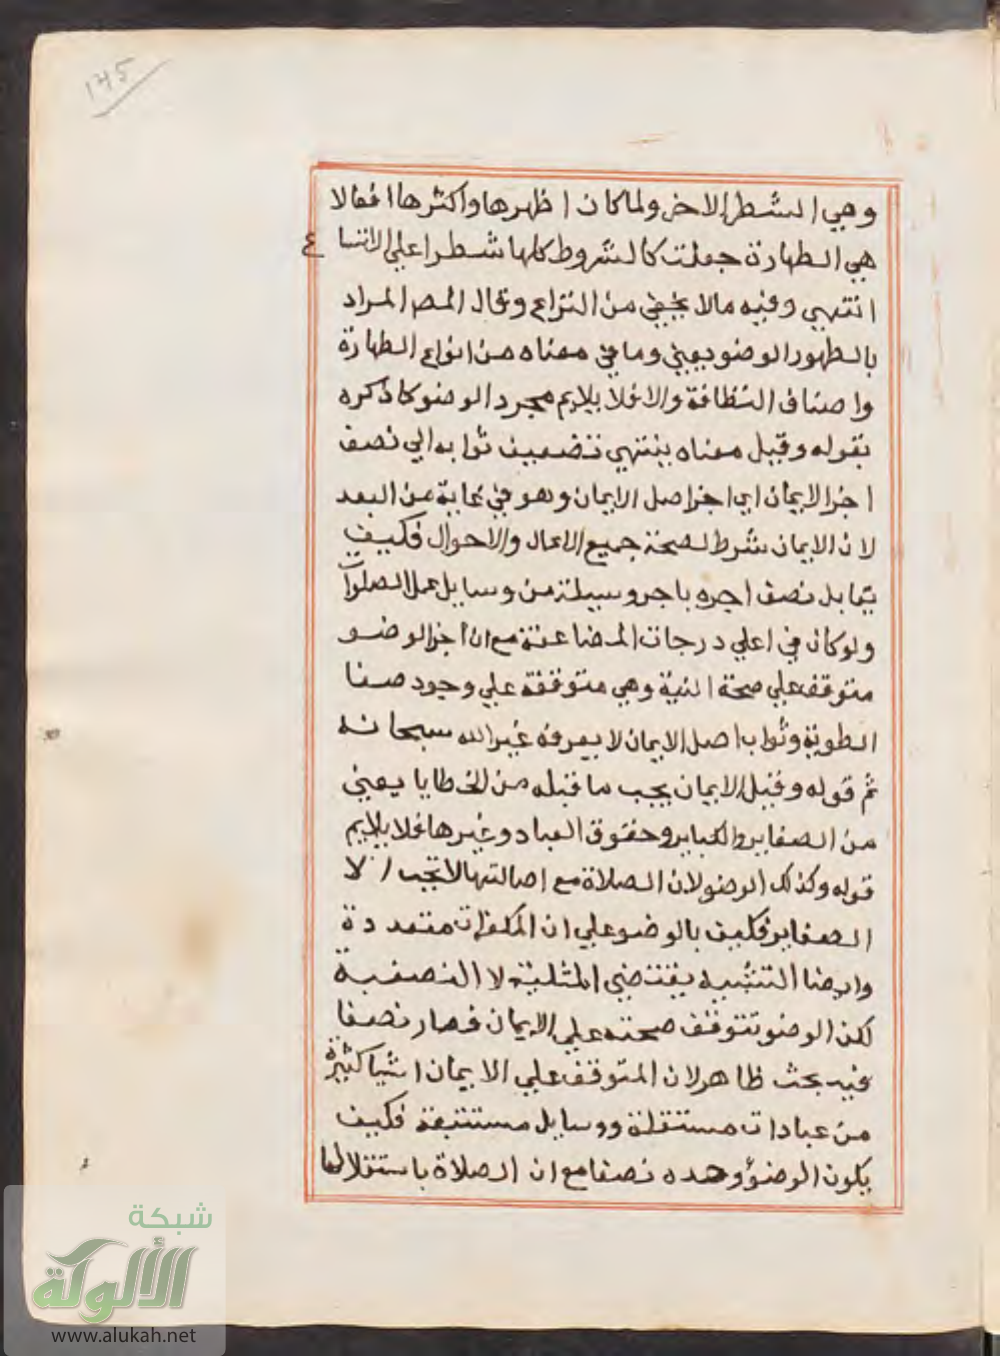 ١٢٥
وهي الشطر الاخر ولما كان اظهرها واكثرها افعالا
هي الطهارة جعلت كالشروط كلها شطرا علي الاتساع
انتهي وفيه مالا يخفي من النزاع وقال المص المراد
بالطهور الوضو يعني وما في معناه من انواع الطهارة
واصناف النظافة والا فلا يلايم مجرد الوضو كما ذكره
بقوله وقيل معناه ينتهي تضعيف ثوابه الي نصف
اجر الايمان اي اجر اصل الايمان وهو في غاية من البعد
لان الايمان شرط لصحة جميع الاعمال والاحوال فكيف
يقابل نصف اجره باجر وسيلة من وسايل عمل الصلوات
ولو كان في اعلي درجات المضاعفة مع ان اجر الوضو
متوقف علي صحة النية وهي متوقفة علي وجود صفا
الطوية وثواب اصل الايمان لا يعرفه غير الله سبحانه
ثم قوله وقيل الايمان يجب ما قبله من الخطايا يعني
من الصغاير والكباير وحقوق العباد وغيرها فلا يلايم
قوله وكذلك الوضو لان الصلاة مع اصالتها لا تجب الا
الصغاير فكيف بالوضو علي ان المكفرات متعددة
وايضا التشبيه يقتضي المثلية لا النصفية
لكن الوضو تتوقف صحته علي الايمان فصار نصفا
فيه بحث ظاهر لان المتوقف علي الايمان اشيا كثيرة
من عبادات مستقلة ووسايل مستتبعة فكيف
يكون الوضؤ وحده نصفا مع ان الصلاة باستقلالها
شبكة
الألوكة
www.alukah.net